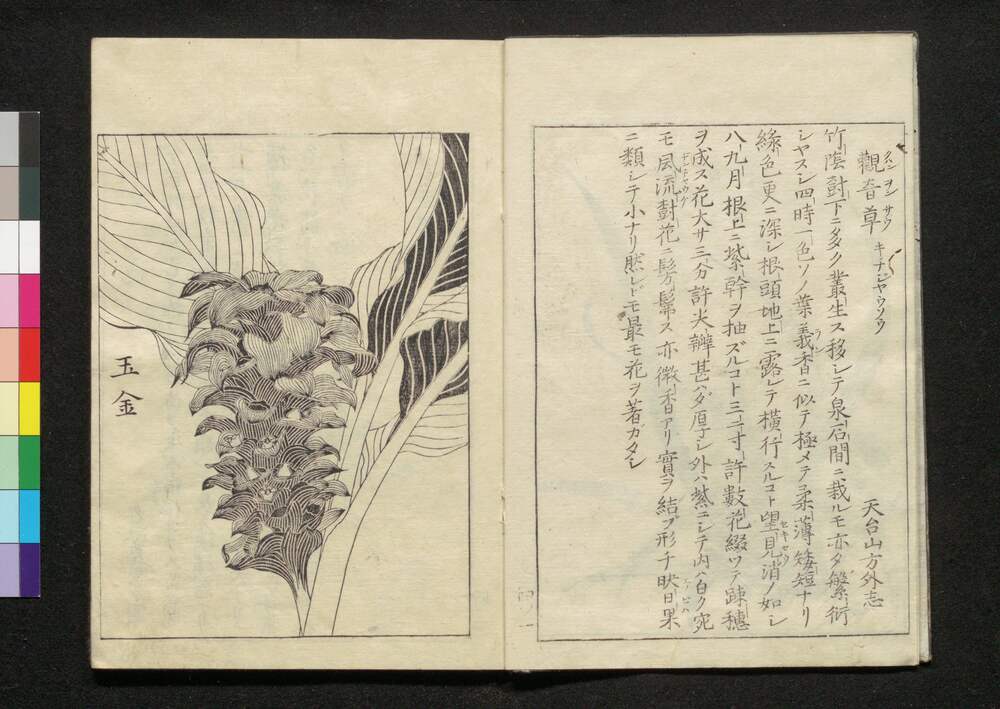 觀音草 キチジヤウソウ 天台山方外志
クハンヲンサウ
竹陰樹下ニ多ク叢生ス移シテ泉石間ニ栽ルモ亦タ繁衍
シヤスシ四時一色ソノ葉義香ニ似テ極メテ柔薄矮短ナリ
緑色更ニ深シ根頭地上ニ露レテ横行スルコト望見消ノ如シ
八九月根上ニ紫幹ヲ抽ズルコト三二寸許數花綴ツテ疎穗
ヲ成ス花大サ三分許尖瓣甚ハダ厚シ外ハ紫ニシテ内ハ白ク宛
モ風流樹花ニ髣髴ス亦微香アリ實ヲ結ブ形チ映日果
ニ類シテ小ナリ然レドモ最モ花ヲ著ガタシ
玉金